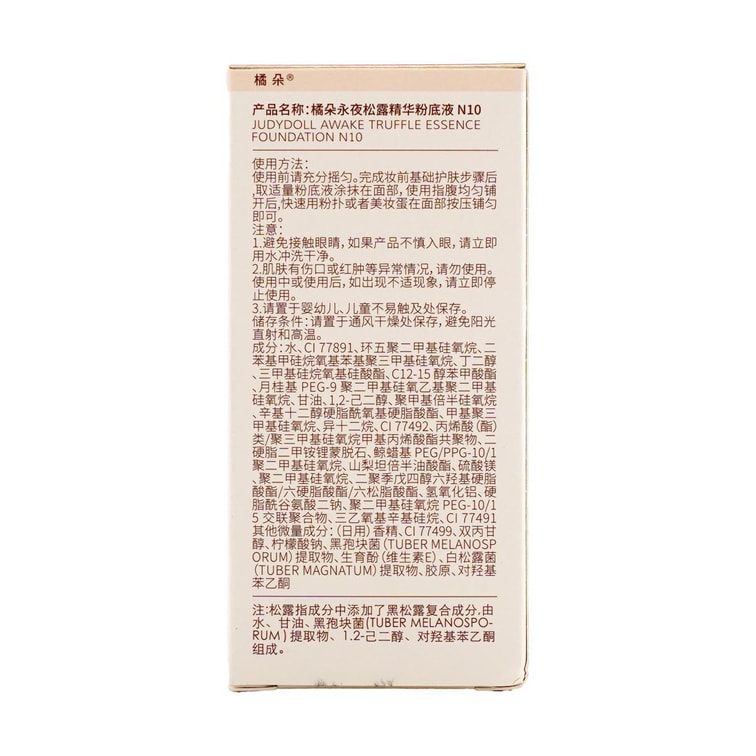 橘朵®
产品名称:橘朵永夜松露精华粉底液 N10
JUDYDOLL AWAKE TRUFFLE ESSENCE
FOUNDATION N10
使用方法:
使用前请充分摇匀。完成妆前基础护肤步骤后
,取适量粉底液涂抹在面部,使用指腹均匀铺
开后,快速用粉扑或者美妆蛋在面部按压铺匀
即可。
注意:
1.避免接触眼睛,如果产品不慎入眼,请立即
用水冲洗干净。
2.肌肤有伤口或红肿等异常情况,请勿使用。
使用中或使用后,如出现不适现象,请立即停
止使用。
3.请置于婴幼儿、儿童不易触及处保存。
储存条件:请置于通风干燥处保存,避免阳光
直射和高温。
成分:水、CI 77891、环五聚二甲基硅氧烷、二
苯基甲硅烷氧基苯基聚三甲基硅氧烷、丁二醇
、三甲基硅烷氧基硅酸酯、C12-15 醇苯甲酸酯
、月桂基 PEG-9 聚二甲基硅氧乙基聚二甲基
硅氧烷、甘油、1,2-己二醇、聚甲基倍半硅氧烷
、辛基十二醇硬脂酰氧基硬脂酸酯、甲基聚三
甲基硅氧烷、异十二烷、CI 77492、丙烯酸(酯)
类/聚三甲基硅氧烷甲基丙烯酸酯共聚物、二
硬脂二甲铵锂蒙脱石、鲸蜡基 PEG/PPG-10/1
聚二甲基硅氧烷、山梨坦倍半油酸酯、硫酸镁
、聚二甲基硅氧烷、二聚季戊四醇六羟基硬脂
酸酯/六硬脂酸酯/六松脂酸酯、氢氧化铝、硬
脂酰谷氨酸二钠、聚二甲基硅氧烷 PEG-10/1
5 交联聚合物、三乙氧基辛基硅烷、CI 77491
其他微量成分:(日用)香精、CI 77499、双丙甘
醇、柠檬酸钠、黑孢块菌(TUBER MELANOSP
ORUM)提取物、生育酚(维生素E)、白松露菌
(TUBER MAGNATUM)提取物、胶原、对羟基
苯乙酮
注:松露指成分中添加了黑松露复合成分,由
水、甘油、黑孢块菌(TUBER MELANOSPO-
RUM)提取物、1.2-己二醇、对羟基苯乙酮
组成。